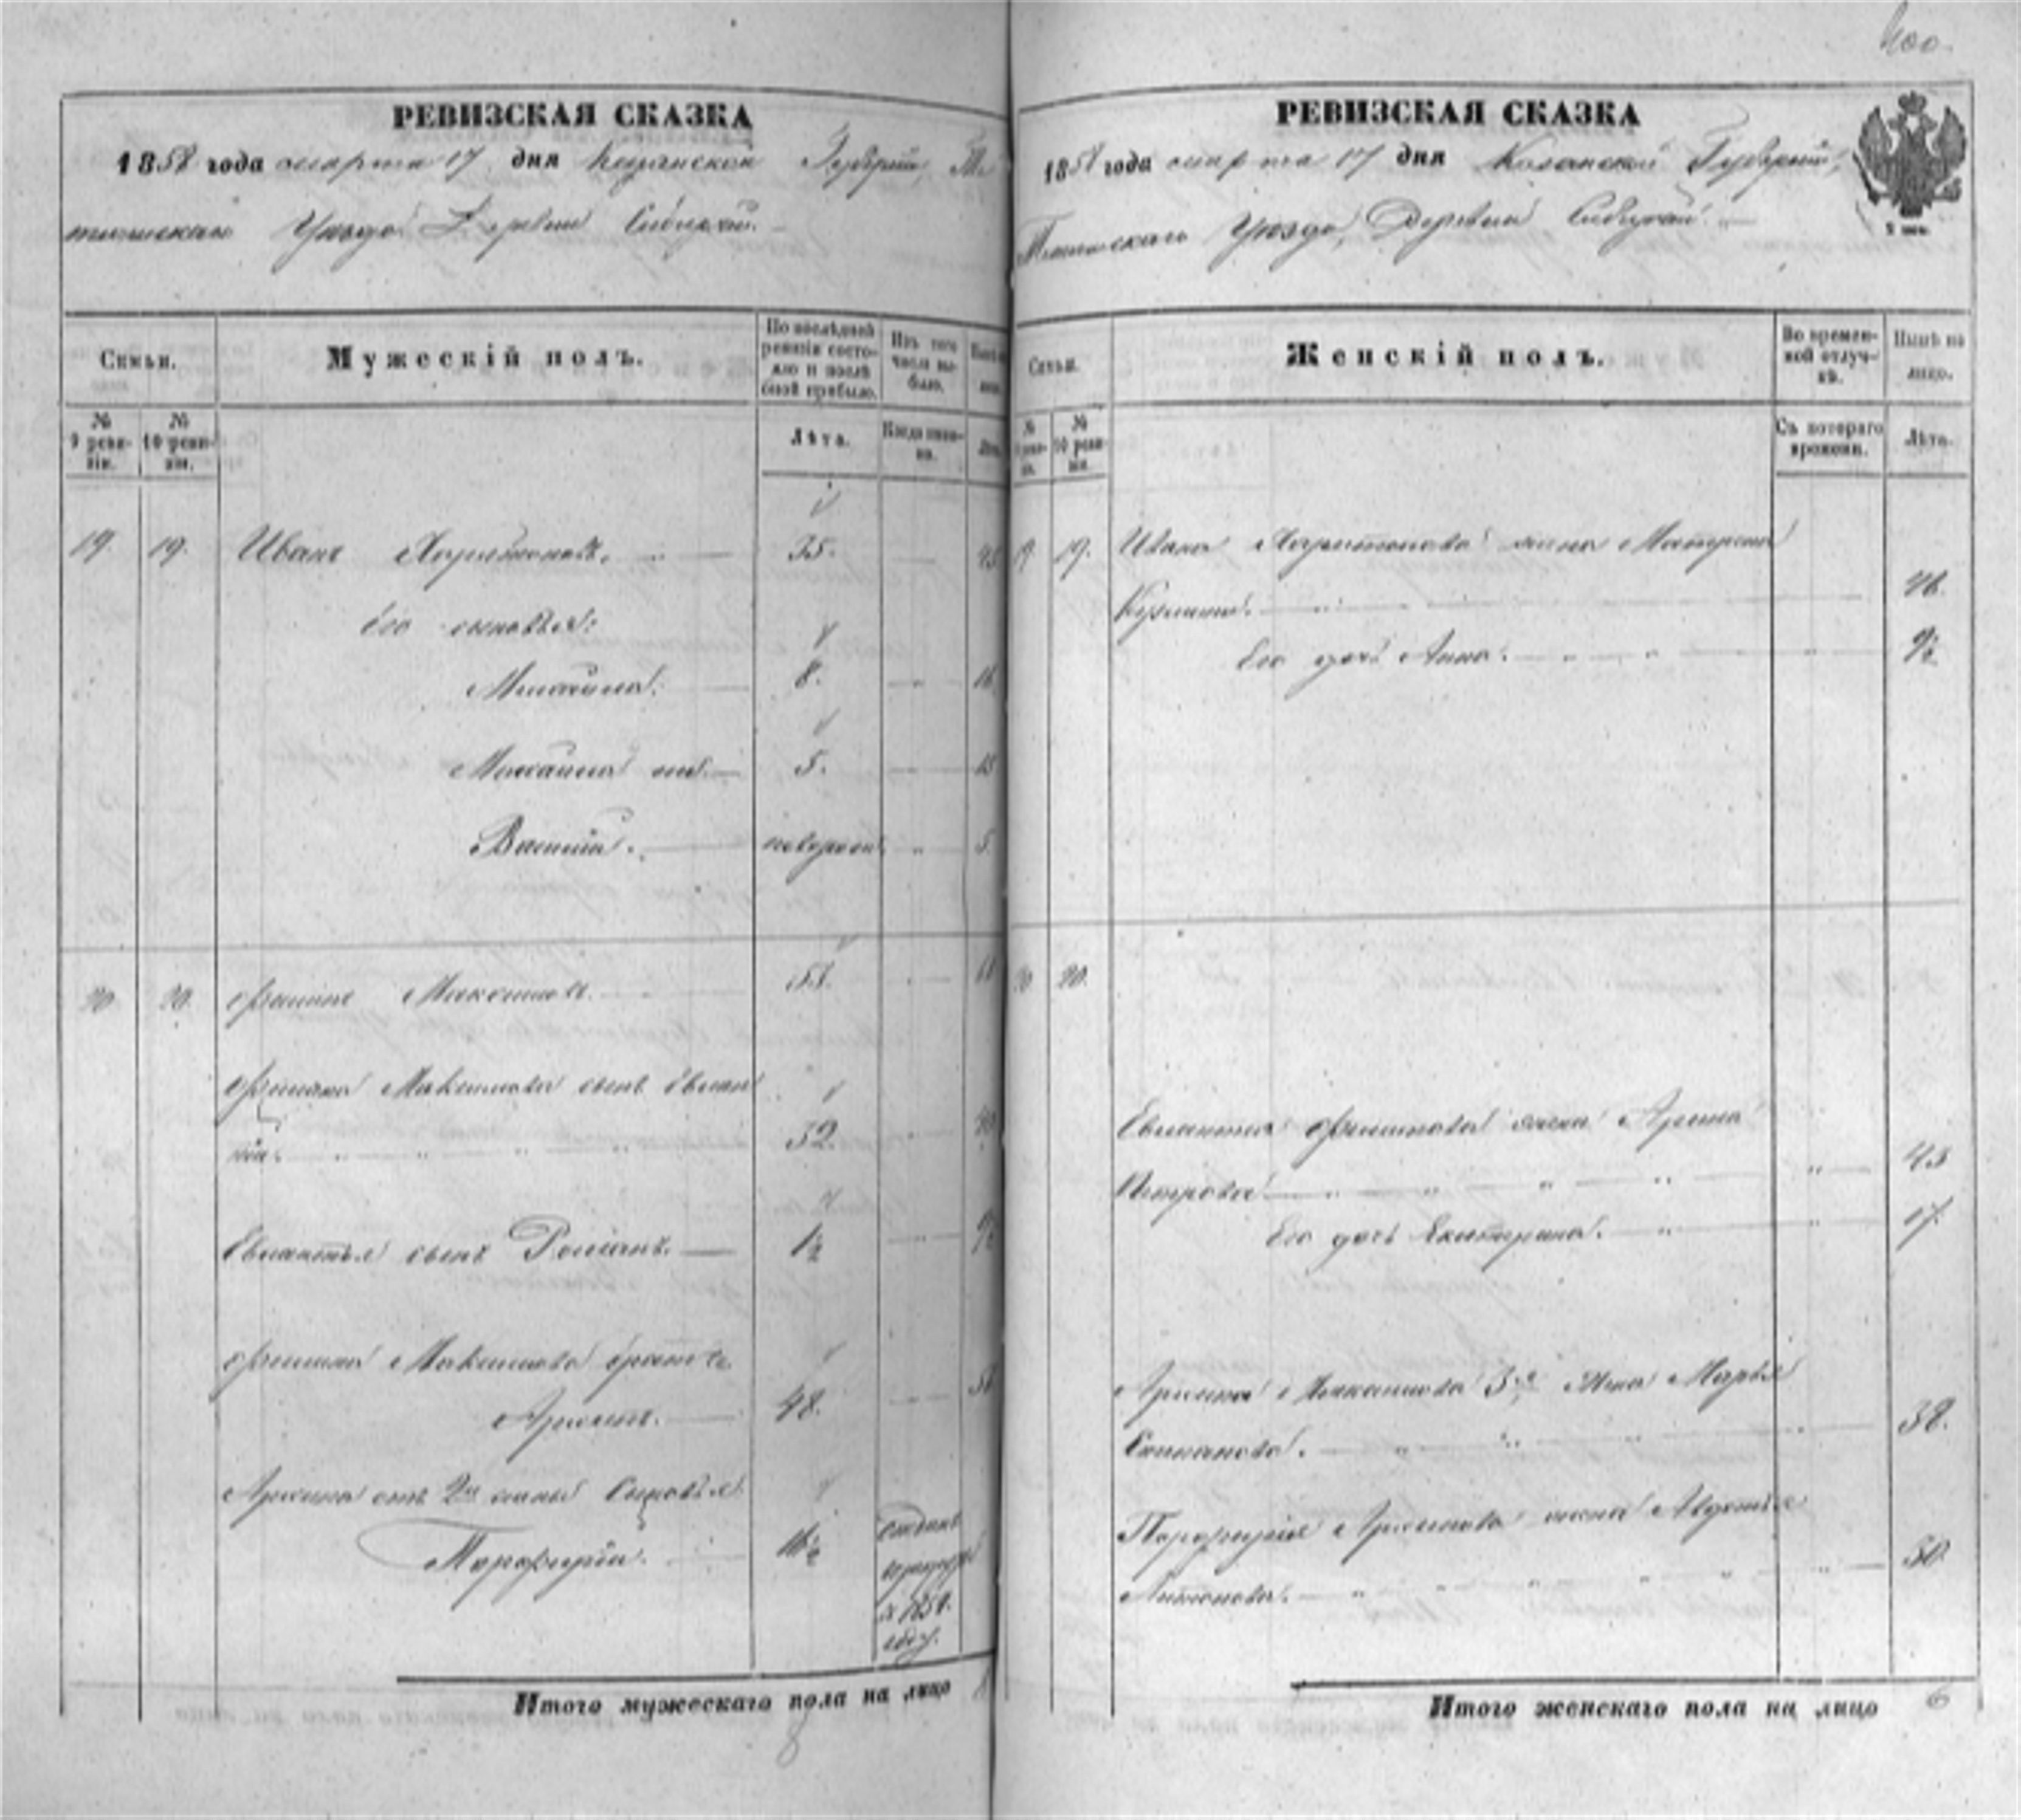 400
РЕВИЗСКАЯ СКАЗКА
1858 года марта 17 дня Казанской Губернии, Те
тюшскаго Уезда Деревни
Семьи.
Мужескій полъ.
По послѣдней ревизіи состояло и послѣ оной прибыло.
Изъ того числа выбыло.
№ 9 ревизіи.
№ 10 ревизіи.
Лѣта.
Когда именно.
19. 19. Иванъ Харитоновъ. 35. 45
Его сыновья:
Михайла. 8. 16
Михайла 5. 13
Василій. новорожд. 5
20 20. Филипъ Максимовъ.
Филипа Максимова сынъ Евлам
пій. 32. 40
Евлампія сынъ Романъ. 1½ 9½
Филипа Максимова братъ
Архипъ. 48. 56
Архипа отъ 2й жены сыновья
Порфирій. 16½ отданъ въ рекруты въ 1854. году.
Итого мужескаго пола на лицо 8
РЕВИЗСКАЯ СКАЗКА
1858 года марта 17 дня Казанской Губерніи,
Тетюшскаго Уезда, Деревни
Семьи.
Женскій полъ.
Во временной отлучкѣ.
Нынѣ на лицо.
№ 9 ревизіи.
№ 10 ревизіи.
Съ котораго времени.
Лѣта.
19. 19. Ивана Харитонова жена Матрена
Кузмина. 46.
Его дочь Анна. 9½
20 20.
Евлампія Филипова жена Арина
Петрова. 43
Его дочь Екатерина. 17.
Архипа Максимова 3я жена Марья
Степанова. 38.
Порфирія Архипова жена Авдотья
Антонова. 30.
Итого женскаго пола на лицо 6